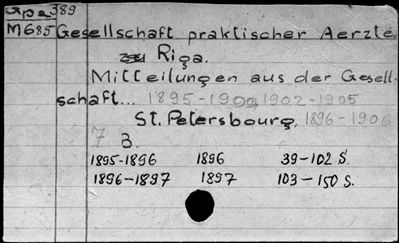 389
M685 Gesellschaft praktischer Aerzte,
zu Riga.
Mitteilungen aus der Gesell-
schaft... 1895-1900, 1902-1905
St. Petersbourg, 1896-1906
7 B.
1895-1896 1896 39-102 S.
1896-1897 1897 103-150 S.